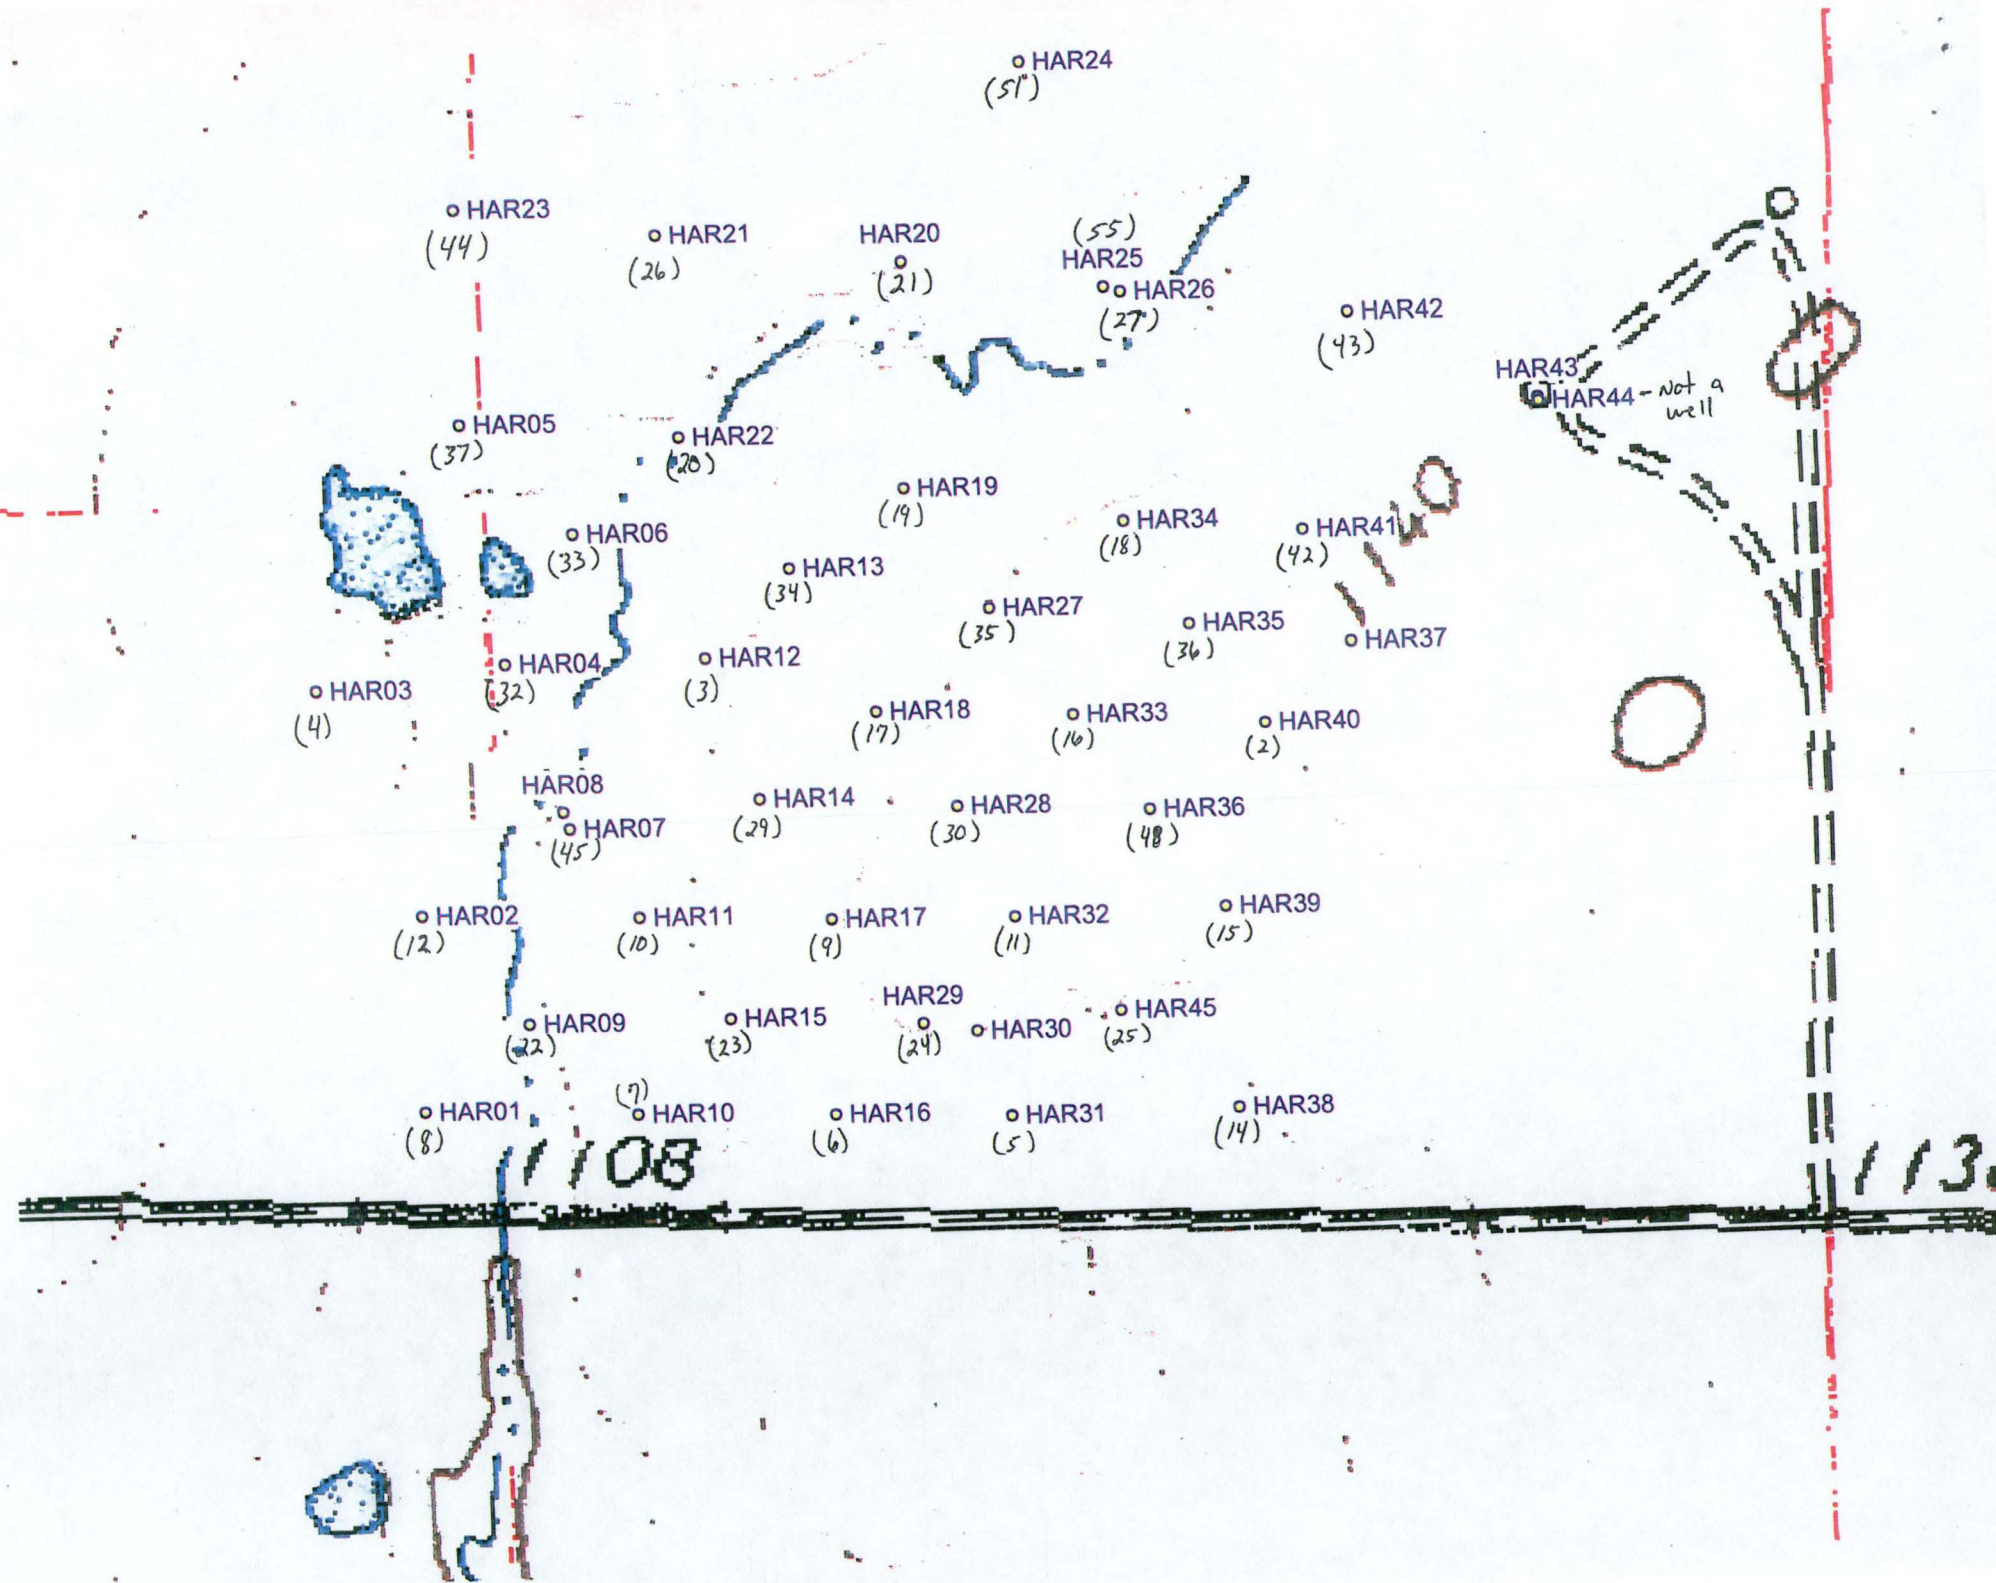 HAR24
(51)
HAR23
(44)
HAR21
(26)
HAR20
(21)
(55)
HAR25
HAR26
(27)
HAR42
(43)
HAR43
HAR44 - Not a
well
HAR05
(37)
HAR22
(20)
HAR19
(19)
HAR34
(18)
HAR41
(42)
HAR06
(33)
HAR13
(34)
HAR27
(35)
HAR35
(36)
HAR37
HAR04
(32)
HAR12
(3)
HAR03
(4)
HAR18
(17)
HAR33
(16)
HAR40
(2)
HAR08
HAR07
(45)
HAR14
(29)
HAR28
(30)
HAR36
(48)
HAR02
(12)
HAR11
(10)
HAR17
(9)
HAR32
(11)
HAR39
(15)
HAR09
(22)
HAR15
(23)
HAR29
(24)
HAR30
HAR45
(25)
HAR01
(8)
(7)
HAR10
HAR16
(6)
HAR31
(5)
HAR38
(14)
1108
113